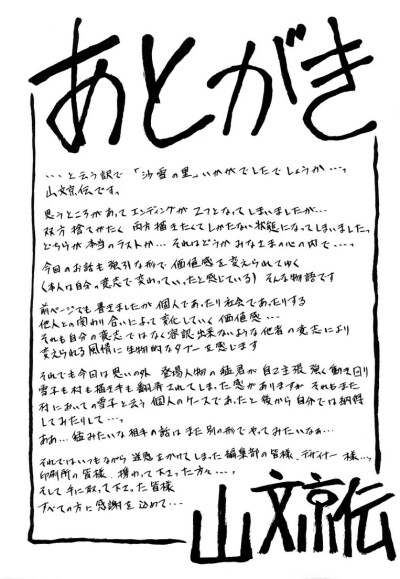 あとがき
…と云う訳で「沙雪の里」いかがでしたでしょうか…。
山文京伝です。
思うところがあってエンディングが2つとなってしまいましたが…
双方捨てがたく両方描きたくてしかたない状態になってしまいました。
どちらが本当のラストか…それはどうかみなさまの心の内で……。
今回のお話も強引な形で価値感を変えられてゆく
(本人は自分の意志で変わっていったと感じている)そんな物語です
前ページでも書きましたが個人であったり社会であったりする
他人との関わり合いによって変化していく価値感…
それも自分の意志ではなく容認出来ないような他者の意志により
変えられる風情に生物的なタナーを感じます
それでも今回は思いの外 登場人物の猛君が自己主張強く働き回り
雪子も村も描き手も翻弄されてしまった感がありますが それもまた
村においての雪子と云う個人のケースであったと後から自分では納得
してみたりして…。
ああ…猛みたいな相手の話はまた別の形でやってみたいなぁ…
それではいつもながら迷惑をかけてしまった編集部の皆様、デザイナー様…。
印刷所の皆様、携わって下さった方々…。
そして手に取って下さった皆様
すべての方に感謝を込めて…
山文京伝